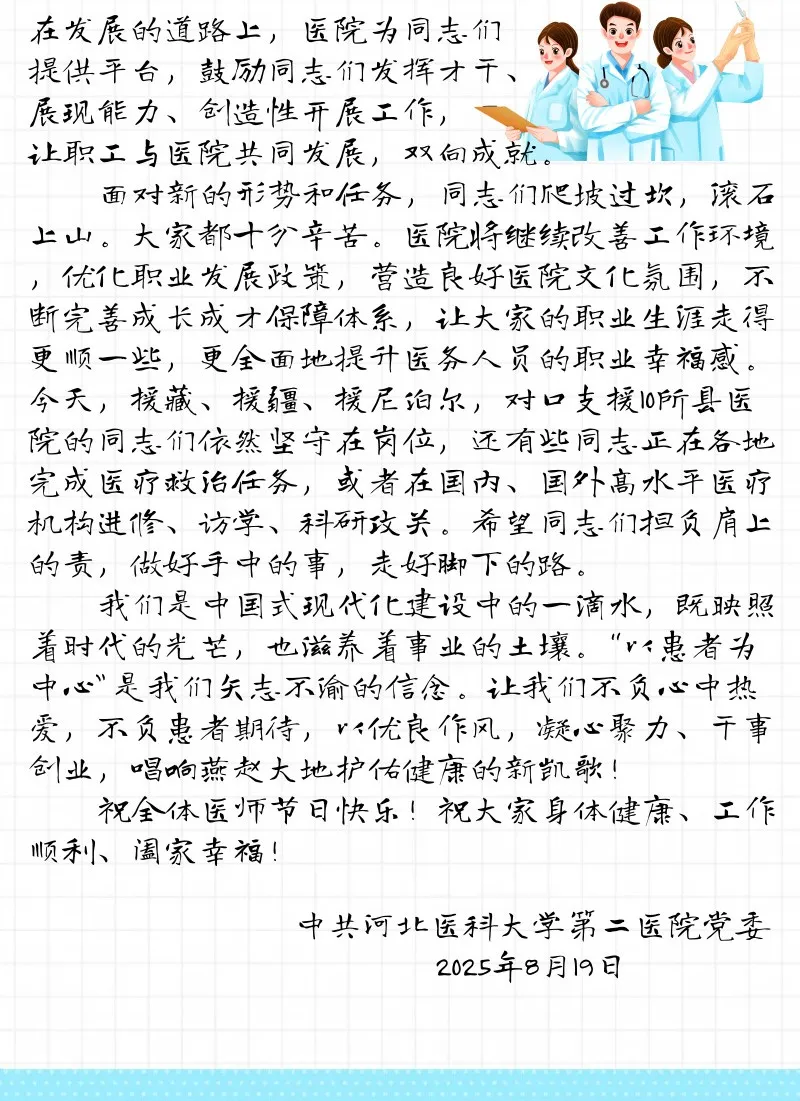 在发展的道路上，医院为同志们
提供平台，鼓励同志们发挥才干、
展现能力、创造性开展工作，
让职工与医院共同发展，双向成就。
面对新的形势和任务，同志们爬坡过坎，滚石
上山。大家都十分辛苦。医院将继续改善工作环境
，优化职业发展政策，营造良好医院文化氛围，不
断完善成长成才保障体系，让大家的职业生涯走得
更顺一些，更全面地提升医务人员的职业幸福感。
今天，援藏、援疆、援尼泊尔，对口支援10所县医
院的同志们依然坚守在岗位，还有些同志正在各地
完成医疗救治任务，或者在国内、国外高水平医疗
机构进修、访学、科研攻关。希望同志们担负肩上
的责，做好手中的事，走好脚下的路。
我们是中国式现代化建设中的一滴水，既映照
着时代的光芒，也滋养着事业的土壤。“以患者为
中心”是我们矢志不渝的信念。让我们不负心中热
爱，不负患者期待，以优良作风，凝心聚力、干事
创业，唱响燕赵大地护佑健康的新凯歌！
祝全体医师节日快乐！祝大家身体健康、工作
顺利、阖家幸福！
中共河北医科大学第二医院党委
2025年8月19日